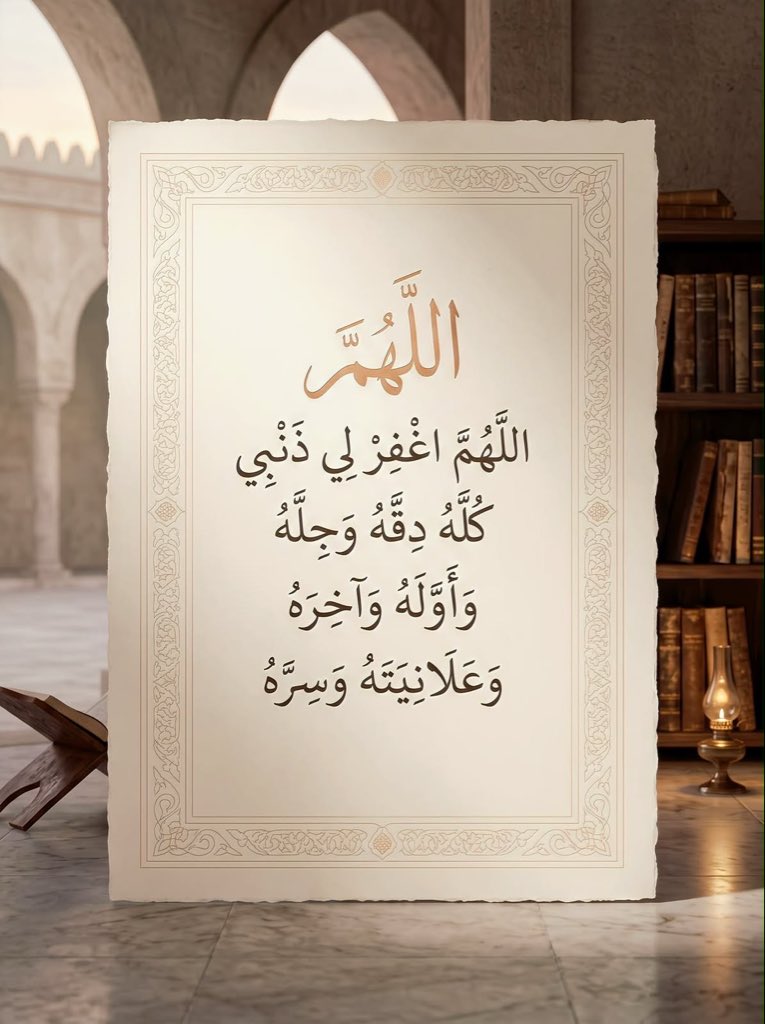 اللَّهُمَّ
اللَّهُمَّ اغْفِرْ لِي ذَنْبِي
كُلَّهُ دِقَّهُ وَجِلَّهُ
وَأَوَّلَهُ وَآخِرَهُ
وَعَلَانِيَتَهُ وَسِرَّهُ